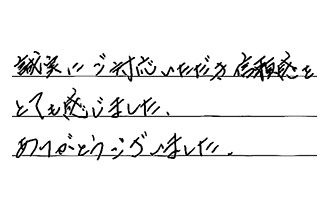 誠実にご対応いただき信頼感を
とても感じました、
ありがとうございました、